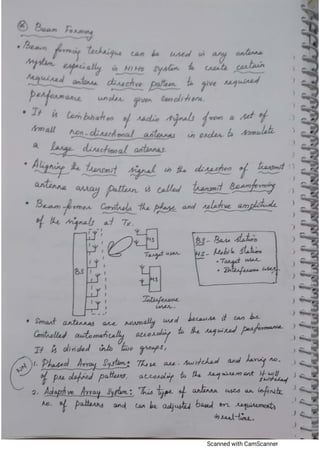 Beam Forming
• Beam forming technique can be used in any antenna
system especially in MIMO system to create certain
required antenna directive pattern to give required
performance under given conditions.
• It is combination of radio signals from a set of
small non-directional antennas in order to simulate
a large directional antennas.
• Aligning the transmit signal in the direction of transmit
antenna array pattern is called transmit Beamforming
• Beam-former Controls the phase and relative amplitude
of the signals at Tx.
BS
MS
Target user
MS
Interference
user
BS - Base station
MS - Mobile Station
• Target user
• Interference user
• Smart antennas are normally used because it can be
Controlled automatically according to the required performance
It is divided into two groups,
1. Phased Array System: These are switched and having no.
of pre defined patterns. according to the requirement it will
switched
2. Adaptive Array System: This type of antenna uses an infinite
no. of patterns and can be adjusted based on requirements
in real-time.
Scanned with CamScanner